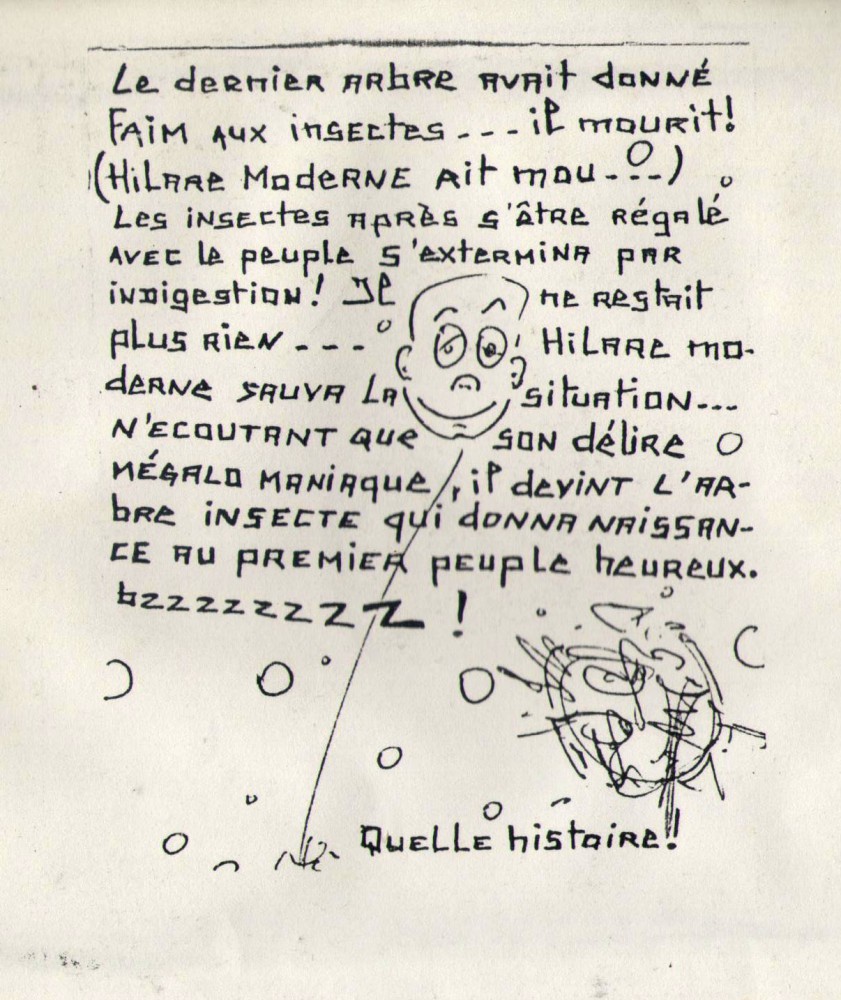 Le dernier arbre avait donné
faim aux insectes --- il mourit!
(Hilare Moderne ait mou----)
Les insectes après s'âtre régalé
avec le peuple s'extermina par
indigestion! Il ne restait
plus rien ---- Hilare mo-
derne sauva la situation---
N'ecoutant que son délire
mégalo maniaque, il devint l'ar-
bre insecte qui donna naissan-
ce au premier peuple heureux.
bzzzzzzzzz !
Quelle histoire!!